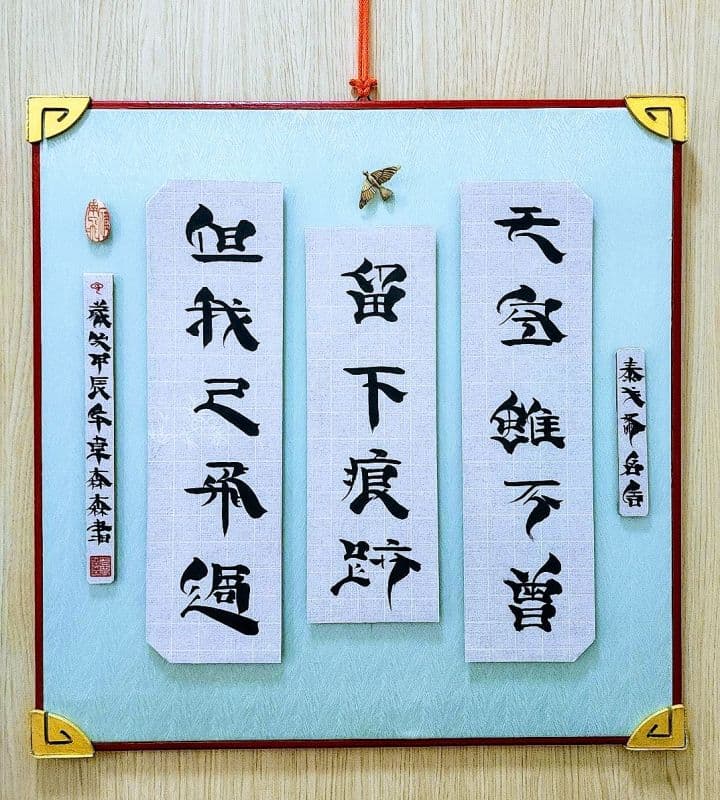 泰戈爾名言
天空雖不曾
留下痕跡
但我已飛過
歲次甲辰年韋森森書